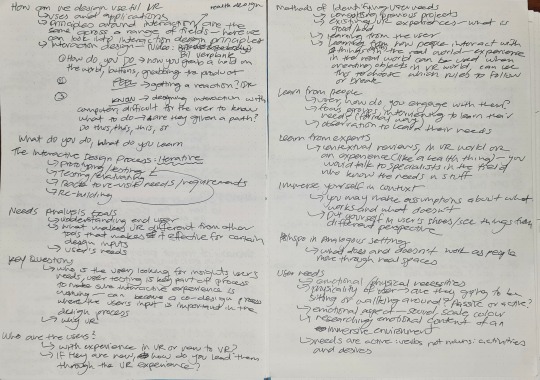 How can we design useful VR
↳ uses and applications
health design
↳ principles around interaction are the
same across a range of fields - have we
can use key interaction design principles
↳ Interaction design - Nike:
Bill Verplank
① How do you DO → how you grab a hold on
the world, buttons, grabbing the product
② FEEL → getting a reaction? or
③ KNOW → designing, interaction with
computer, difficult for the user to know
what to do → are they given a path?
Do this, this, this, or
What do you do, What do you learn
The Interactive Design Process: iterative
↳ prototyping/testing
↳ Testing/evaluating
↳ back to re-visit needs/requirements
↳ Re-building
Needs Analysis Goals
↳ understanding end user
↳ What makes VR different from other
tools that makes it effective for certain
design inputs
↳ user's needs
Key Questions
↳ who is the user, looking for insights, user's
needs, user testing is key part of process
to make sure interactive experience is
working - can become a co-design process
where the users input is important in the
design process
↳ why VR?
Who are the users?
↳ with experience in VR or new to VR?
↳ If they are new, how do you lead them
through the VR experience?
Methods of Identifying user needs
↳ analogous projects
↳ existing VR experiences - what is
good/bad
↳ learning from the user
↳ Learning from how people interact with
things in the real world - experience
in the real world can be used when
creating objects in VR world, can use
this to choose which rules to follow
or break
Learn from people
↳ user, how do you engage with them?
↳ focus groups, interviewing to learn their
needs
↳ observation to learn their needs
Learn from experts
↳ contextual reviews, in VR world or
an experience (like a health thing) - you
would talk to specialists in the field
who know the needs in stuff
Immerse yourself in context
↳ You may make assumptions about what
works and what doesn't
↳ Put yourself in users shoes/see things from
different perspective
Inspo in Analogous Setting
↳ what does and doesn't work as people
move through real spaces
User needs
↳ emotional, physical necessities
↳ physicality of user - are they going to be
sitting or walking around? Passive or active?
↳ emotional aspect - sound, scale, colour
↳ researching emotional content of an
immersive environment
↳ needs are active verbs not nouns: activities
and desires